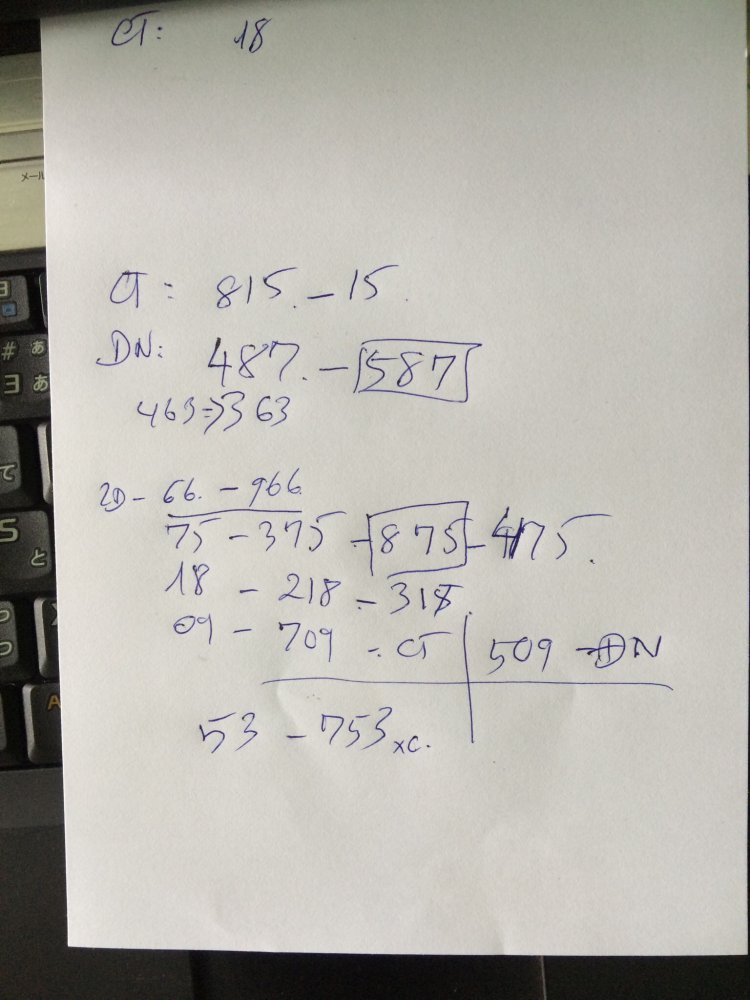 CT: 18
CT: 815. - 15.
DN: 487. - 587
463 => 363
2D - 66. - 966.
75 - 375 - 875 - 475.
18 - 218 - 318.
09 - 709 - CT 509 - DN
53 - 753 xc.
メール
# あ
ヨ あ
て
S
と
っ
つ
A